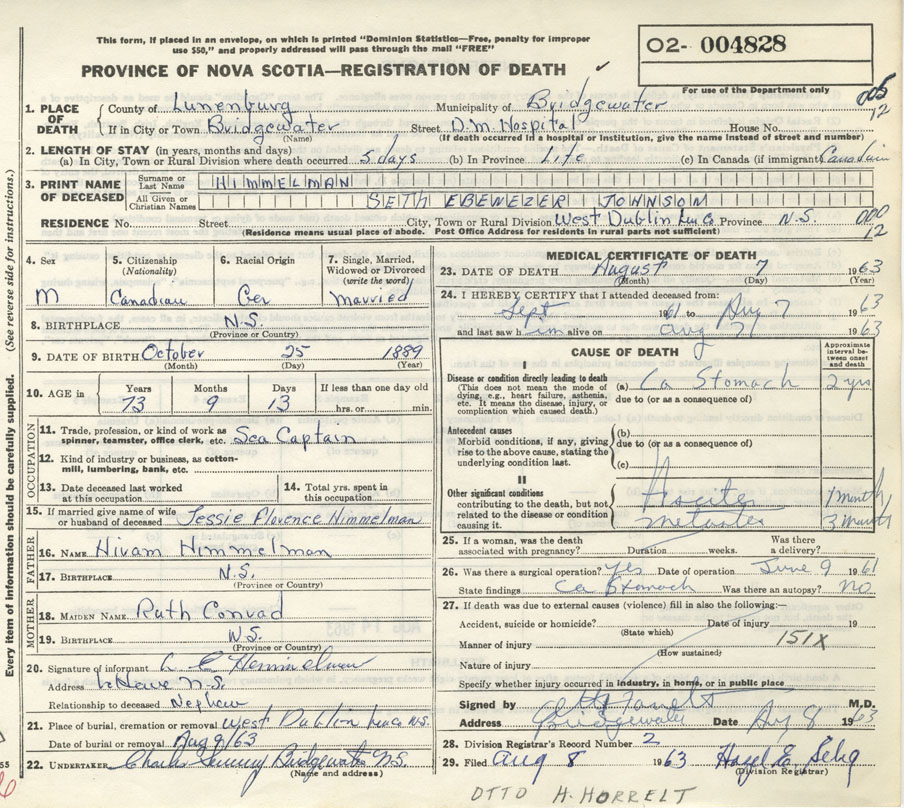 This form, if placed in an envelope, on which is printed "Dominion Statistics—Free, penalty for improper
use $50," and properly addressed will pass through the mail "FREE"
O2- 004828
PROVINCE OF NOVA SCOTIA—REGISTRATION OF DEATH
For use of the Department only
1. PLACE OF DEATH
County of Lunenburg Municipality of Bridgewater
005
12
If in City or Town Bridgewater Street D.M. Hospital House No.
(Name) (If death occurred in a hospital or institution, give the name instead of street and number)
2. LENGTH OF STAY (in years, months and days)
(a) In City, Town or Rural Division where death occurred 5 days (b) In Province Life (c) In Canada (if immigrant) Canadian
3. PRINT NAME OF DECEASED
Surname or Last Name HIMMELMAN
All Given or Christian Names SETH EBEWEZER JOHNSON
RESIDENCE No. Street City, Town or Rural Division West Dublin Lun Co Province N.S.
000
12
(Residence means usual place of abode. Post Office Address for residents in rural parts not sufficient)
4. Sex
M
5. Citizenship (Nationality)
Canadian
6. Racial Origin
Ger
7. Single, Married, Widowed or Divorced (write the word)
Married
8. BIRTHPLACE N.S.
(Province or Country)
9. DATE OF BIRTH October 25 1889
(Month) (Day) (Year)
10. AGE in Years Months Days If less than one day old
73 9 13 hrs. or min.
OCCUPATION
11. Trade, profession, or kind of work as spinner, teamster, office clerk, etc. Sea Captain
12. Kind of industry or business, as cotton-mill, lumbering, bank, etc.
13. Date deceased last worked at this occupation
14. Total yrs. spent in this occupation
15. If married give name of wife or husband of deceased Jessie Florence Himmelman
FATHER
16. NAME Hiram Himmelman
17. BIRTHPLACE N.S.
(Province or Country)
MOTHER
18. MAIDEN NAME Ruth Conrad
19. BIRTHPLACE N.S.
(Province or Country)
20. Signature of informant Himmelman
Address LaHave N.S.
Relationship to deceased Nephew
21. Place of burial, cremation or removal West Dublin Lun Co N.S.
Date of burial or removal Aug 9/63
22. UNDERTAKER Bridgewater N.S.
(Name and address)
MEDICAL CERTIFICATE OF DEATH
23. DATE OF DEATH August 7 1963
(Month) (Day) (Year)
24. I HEREBY CERTIFY that I attended deceased from:
Sept 1961 to Aug 7 1963
and last saw him alive on Aug 7 1963
CAUSE OF DEATH
Approximate interval between onset and death
I
Disease or condition directly leading to death (a) Ca Stomach 2 yrs
(This does not mean the mode of dying, e.g., heart failure, asthenia, etc. It means the disease, injury, or complication which caused death.)
due to (or as a consequence of)
Antecedent causes
Morbid conditions, if any, giving rise to the above cause, stating the underlying condition last.
(b)
due to (or as a consequence of)
(c)
II
Other significant conditions contributing to the death, but not related to the disease or condition causing it.
Ascites 1 month
3 months
25. If a woman, was the death associated with pregnancy? Duration weeks. Was there a delivery?
26. Was there a surgical operation? Yes Date of operation June 9 1961
State findings Ca Stomach Was there an autopsy? No
27. If death was due to external causes (violence) fill in also the following:—
Accident, suicide or homicide? Date of injury 19
(State which)
Manner of injury 151X
(How sustained)
Nature of injury
Specify whether injury occurred in industry, in home, or in public place
Signed by M.D.
Address Bridgewater Date Aug 8 1963
28. Division Registrar's Record Number 2
29. Filed Aug 8 1963 Hazel E. Selig
(Division Registrar)
OTTO H. HORRELT
Every item of information should be carefully supplied. (See reverse side for instructions.)